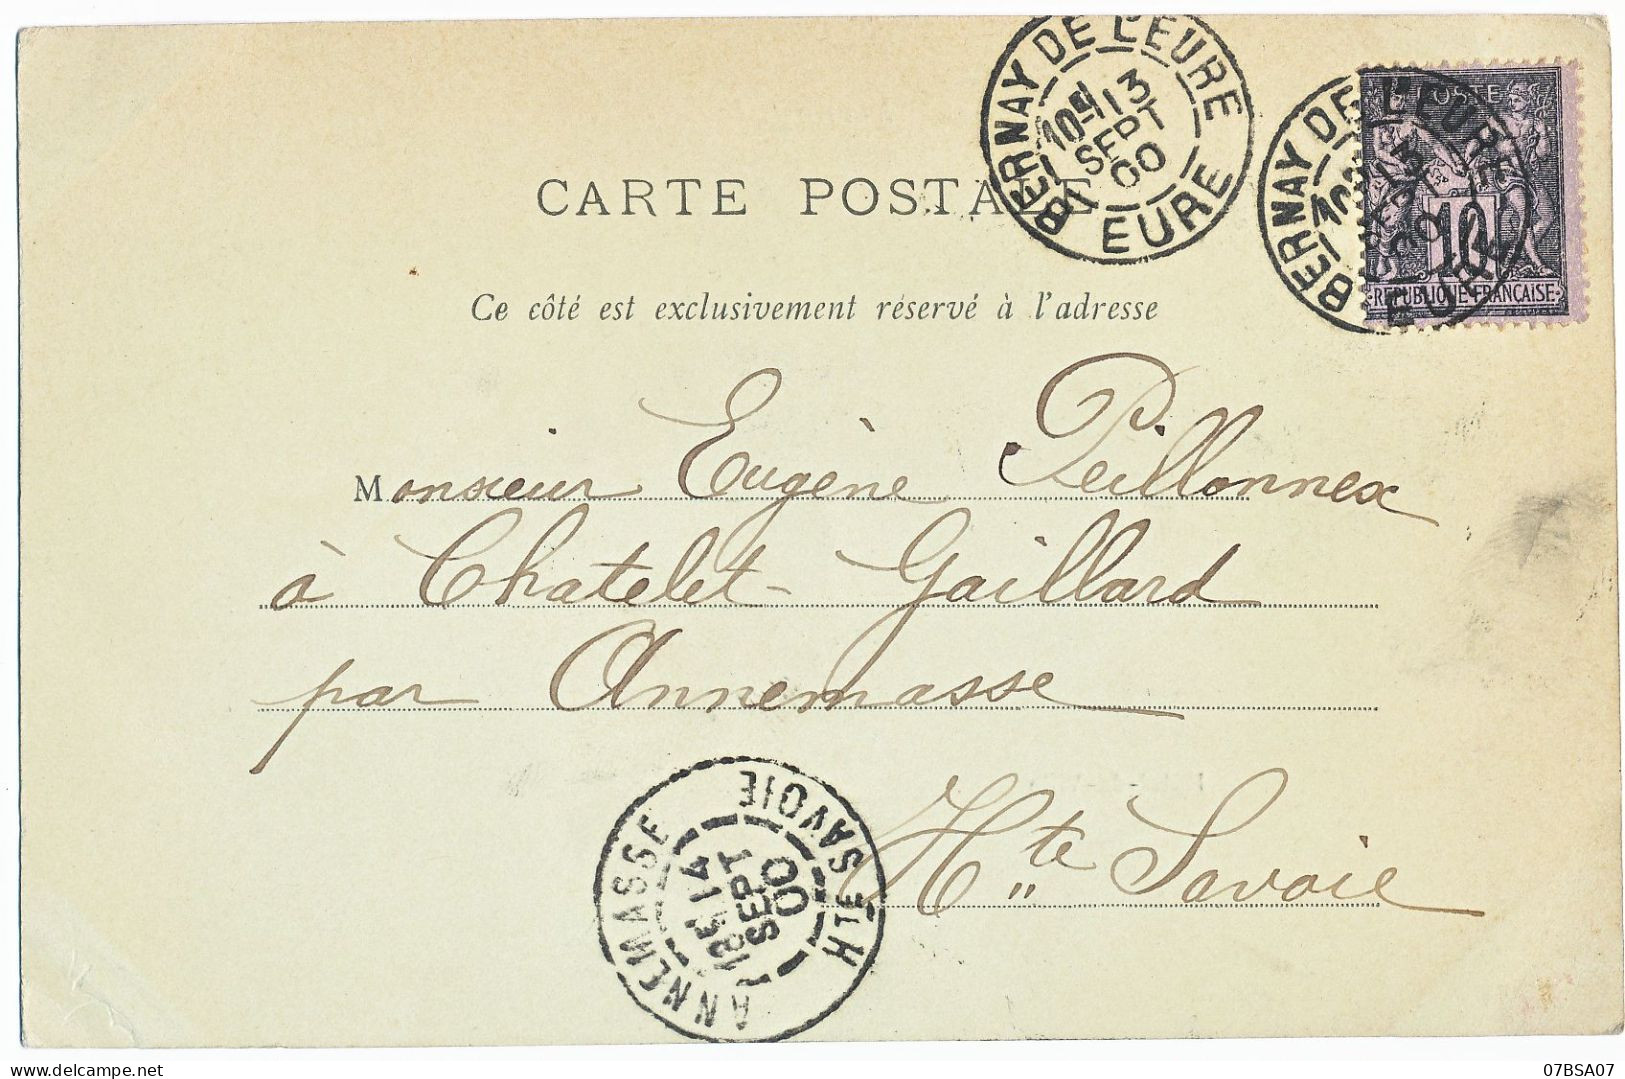 BERNAY DE L'EURE
10E 13
SEPT
00
EURE
BERNAY DE L'EURE
13
SEPT
00
EURE
POSTE
10
REPUBLIQUE FRANÇAISE
CARTE POSTALE
Ce côté est exclusivement réservé à l'adresse
Monsieur Eugène Peillonnex
à Chatelet-Gaillard
par Annemasse
Hte Savoie
ANNEMASSE
14
SEPT
00
HTE SAVOIE
07BSA07